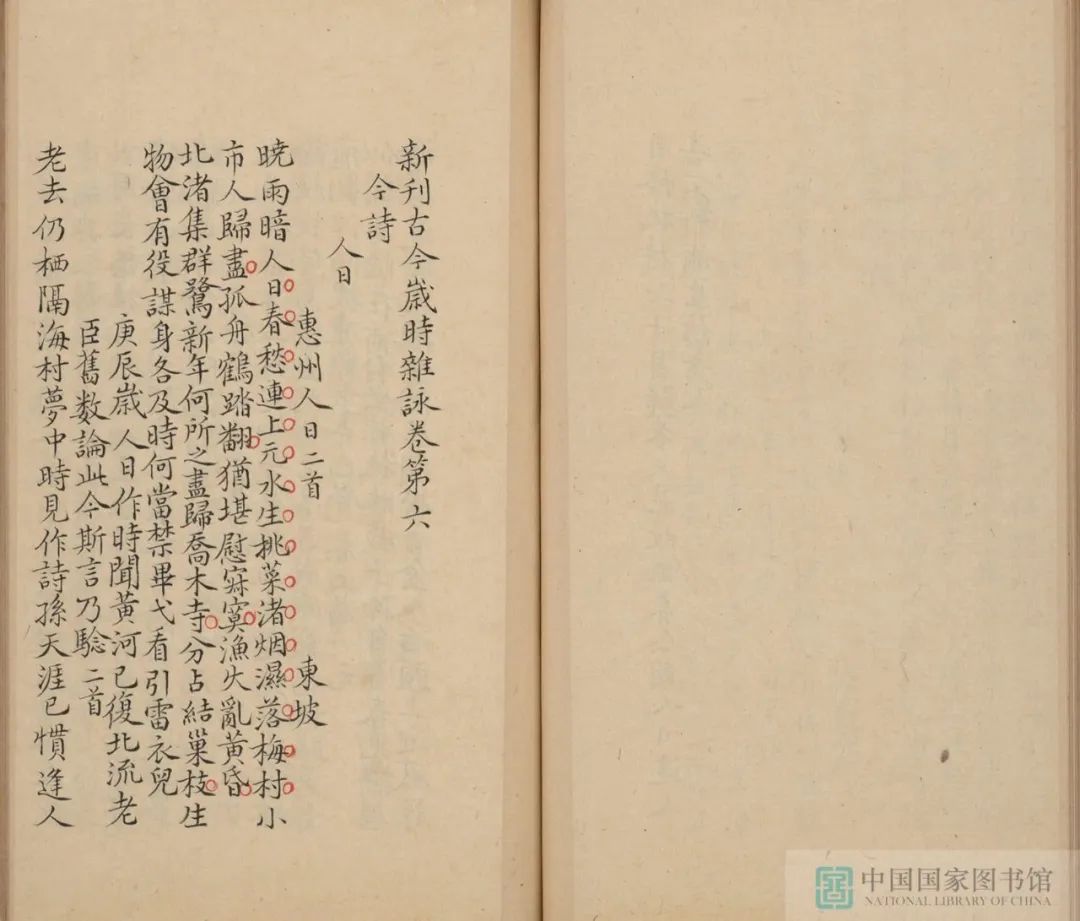 新刊古今歲時雜詠卷第六
今詩
人日
惠州人日二首 東坡
曉雨暗人日春愁連上元水生挑菜渚烟濕落梅村小
市人歸盡孤舟鶴踏翻猶堪慰寂寞漁火亂黃昏
北渚集群鷺新年何所之盡歸喬木寺分占結巢枝生
物會有役謀身各及時何當禁畢弋看引雪衣兒
庚辰歲人日作時聞黃河已復北流老
臣舊數論此今斯言乃驗二首
老去仍栖隔海村夢中時見作詩孫天涯已慣逢人
中国国家图书馆
NATIONAL LIBRARY OF CHINA